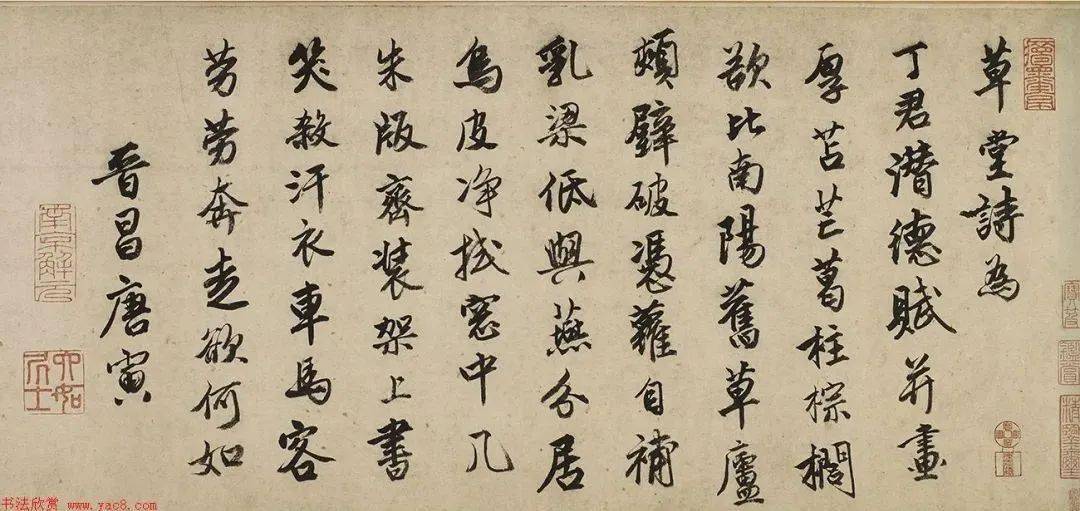 草堂詩為
丁君潛德賦并畫
厚苫芒葛柱棕櫚
欲比南陽舊草廬
頹壁破憑蘿自補
乳梁低與燕分居
烏皮淨拭窓中几
朱版齊裝架上書
笑殺汗衣車馬客
勞勞奔走欲何如
晉昌唐寅
南京解元
六如居士
书法欣赏 www.yac8.com